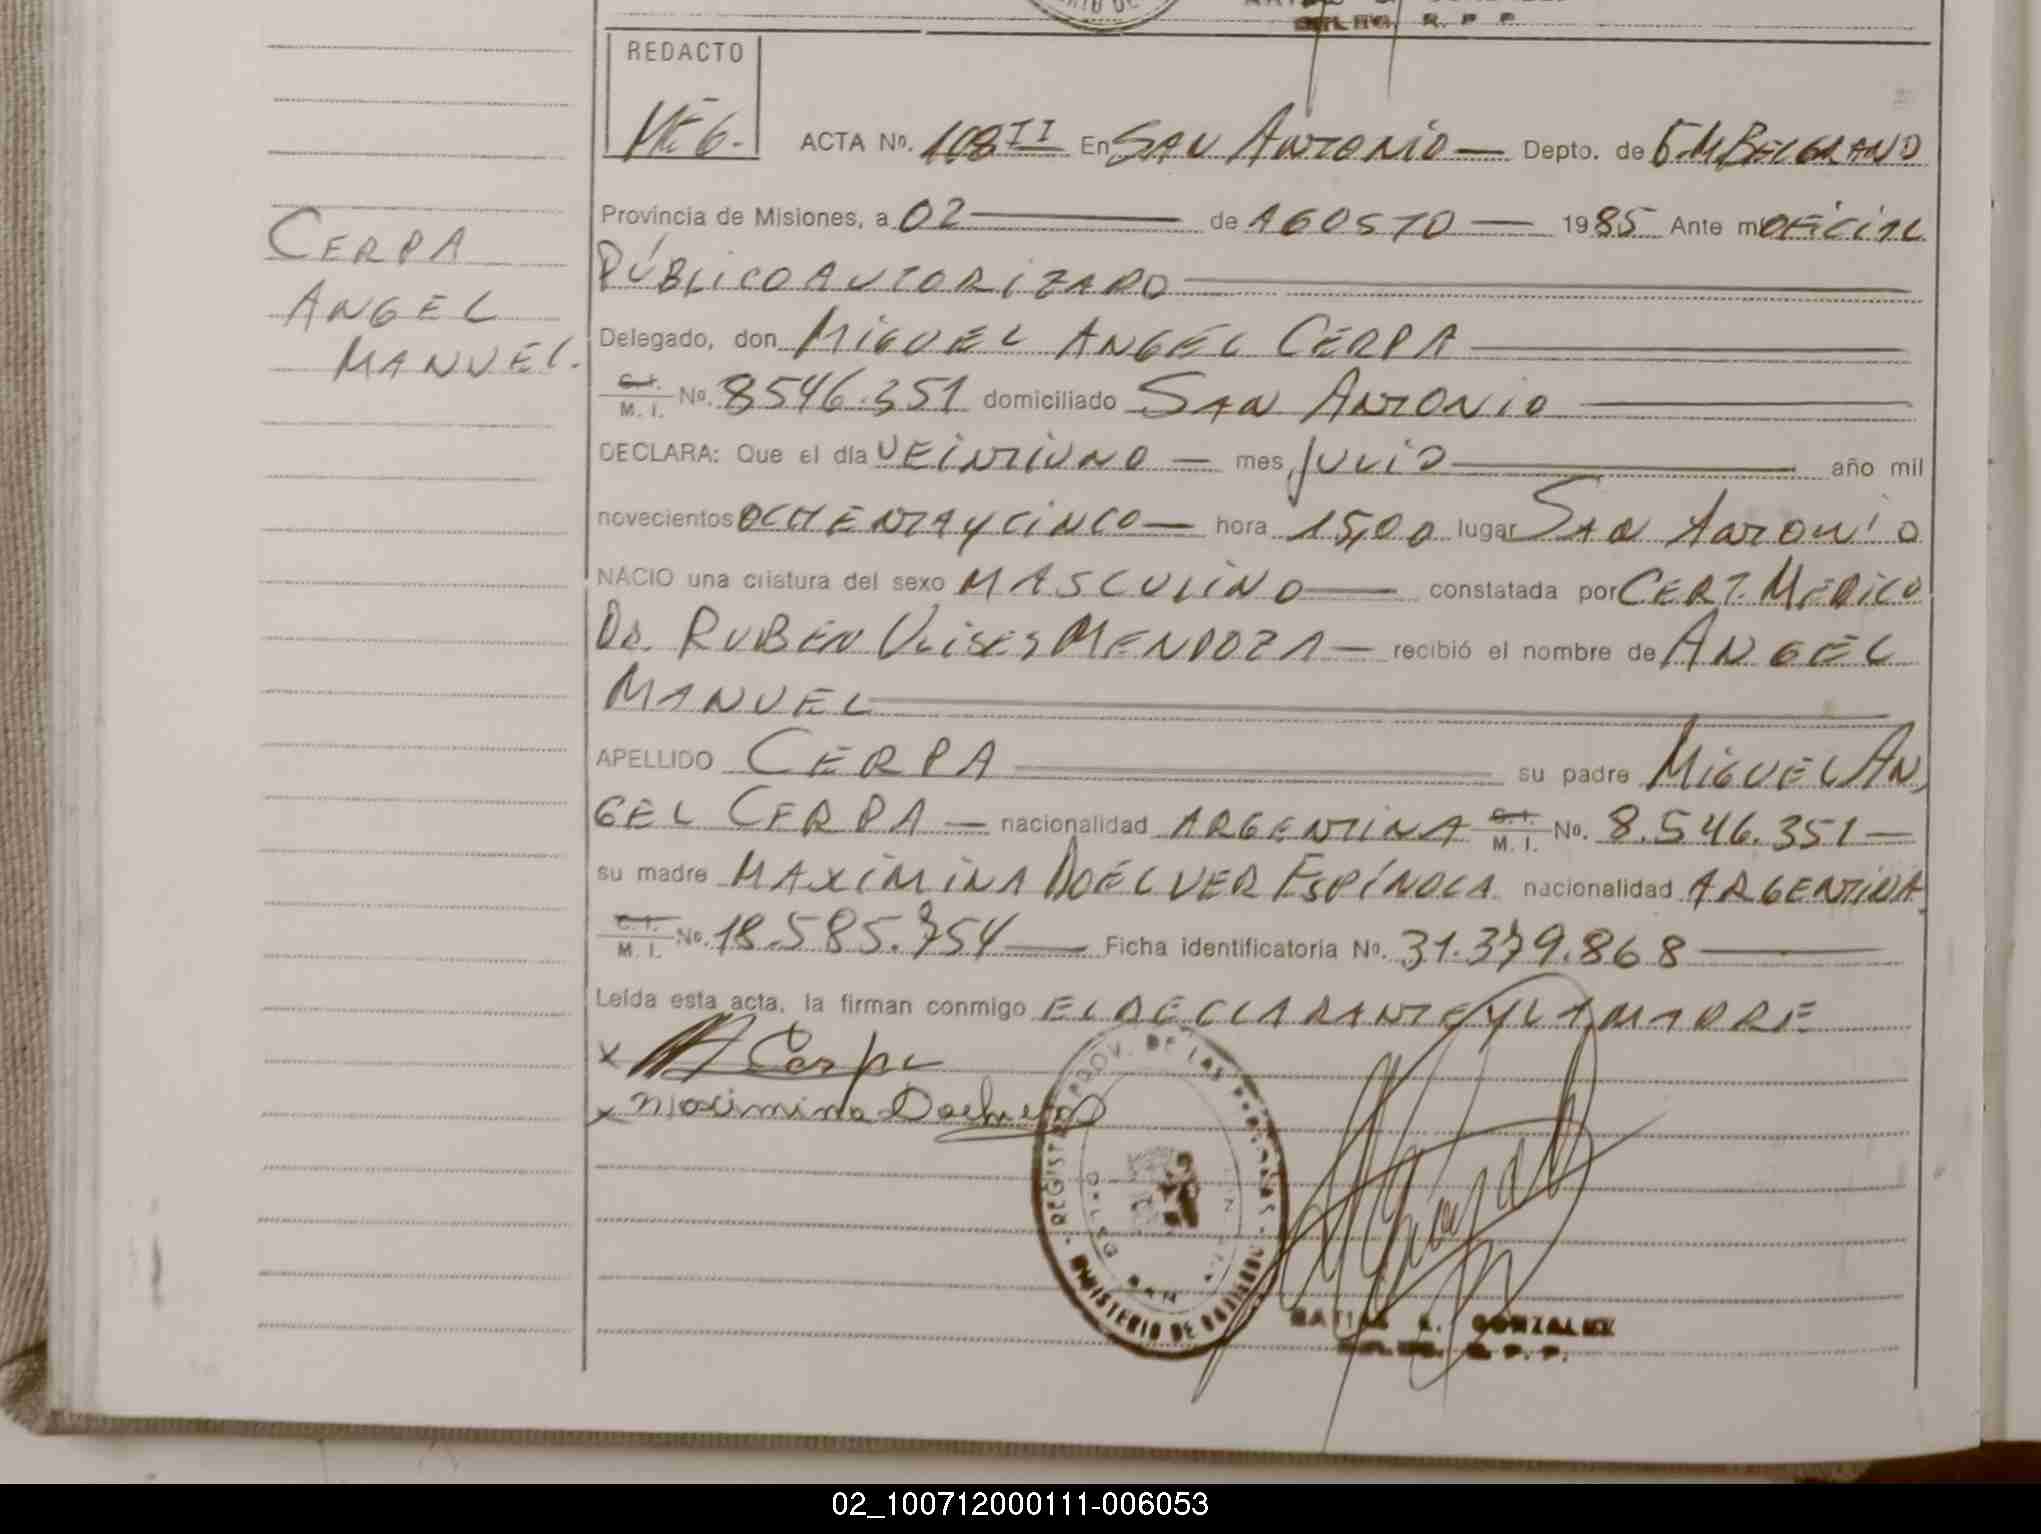 REDACTO
ACTA Nº. 108 II En SAN ANTONIO — Depto. de G M BELGRANO
Provincia de Misiones, a 02 — de AGOSTO — 1985 Ante mi OFICIAL
PÚBLICO AUTORIZADO
CERPA
ANGEL
MANUEL.
Delegado, don MIGUEL ANGEL CERPA
C. I. / M. I. Nº. 8546.351 domiciliado SAN ANTONIO
DECLARA: Que el día VEINTIUNO — mes JULIO — año mil
novecientos OCHENTA Y CINCO — hora 15,00 lugar SAN ANTONIO
NACIO una criatura del sexo MASCULINO — constatada por CERT. MEDICO
DR. RUBEN ULISES MENDOZA — recibió el nombre de ANGEL
MANUEL
APELLIDO CERPA — su padre MIGUEL AN
GEL CERPA — nacionalidad ARGENTINA C. I. / M. I. Nº. 8.546.351 —
su madre MAXIMINA DOELVER ESPÍNOLA nacionalidad ARGENTINA
C. I. / M. I. Nº. 18.585.754 — Ficha identificatoria Nº. 31.379.868 —
Leída esta acta, la firman conmigo EL DECLARANTE Y LA MADRE
x Cerpa
x Maximina
REGISTRO PROV. DE LAS PERSONAS
MINISTERIO DE GOBIERNO
GONZALEZ
R. P. P.
02_100712000111-006053